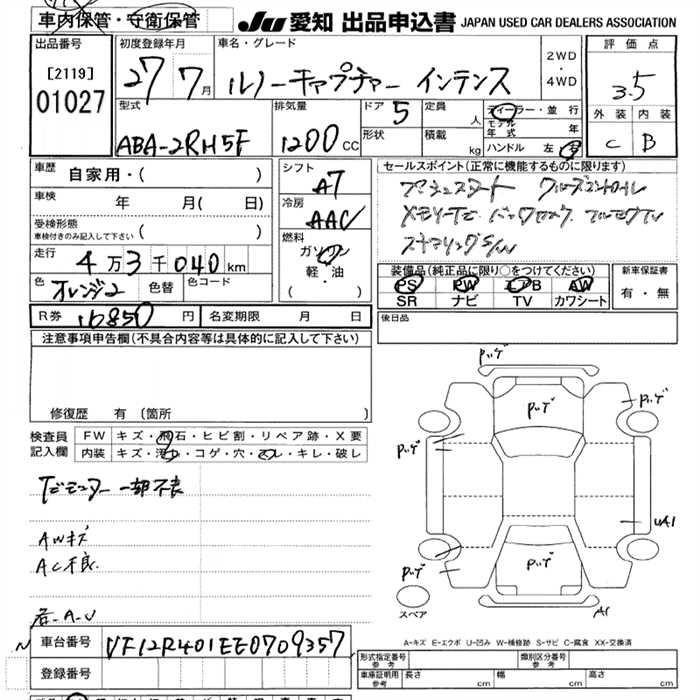 車内保管・守衛保管
JU 愛知 出品申込書 JAPAN USED CAR DEALERS ASSOCIATION
出品番号 初度登録年月 車名・グレード 評価点
[2119]
01027
27 7月 ルノーキャプチャー インテンス 2WD・4WD 3.5
型式 排気量 ドア 定員 ディーラー・並行 外装 内装
ABA-2RH5F 1200cc 5 人 モデル年式 年 C B
形状 積載 kg ハンドル 左・右
車歴 自家用・( ) シフト AT セールスポイント(正常に機能するものに限ります)
車検 年 月( 日) 冷房 AAC
受検形態
車検付きのみ記入して下さい ( )
燃料 ガソリン
軽・油
( ・ )
走行 4万3千040km
装備品(純正品に限り○をつけてください) 新車保証書
PS PW エアB AW
SR ナビ TV カワシート 有・無
色 オレンジ2 色替 色コード
R券 16850円 名変期限 月 日 後日品
注意事項申告欄(不具合内容等は具体的に記入して下さい)
修復歴 有(箇所
検査員 記入欄 FW キズ・飛石・ヒビ割・リペア跡・X要
内装 キズ・汚れ・コゲ・穴・スレ・キレ・破レ
AWキズ
AC不良
Pハゲ
Pハゲ
Pハゲ
Pハゲ
UA1
Pハゲ
Pハゲ
A1
スペア
A-キズ E-エクボ U-凹み W-補修跡 S-サビ C-腐食 XX-交換済
車台番号 VF12R401EE0709357
登録番号
形式指定番号 参考 類別区分番号 参考
車庫証明用 参考 長さ cm 幅 cm 高さ cm